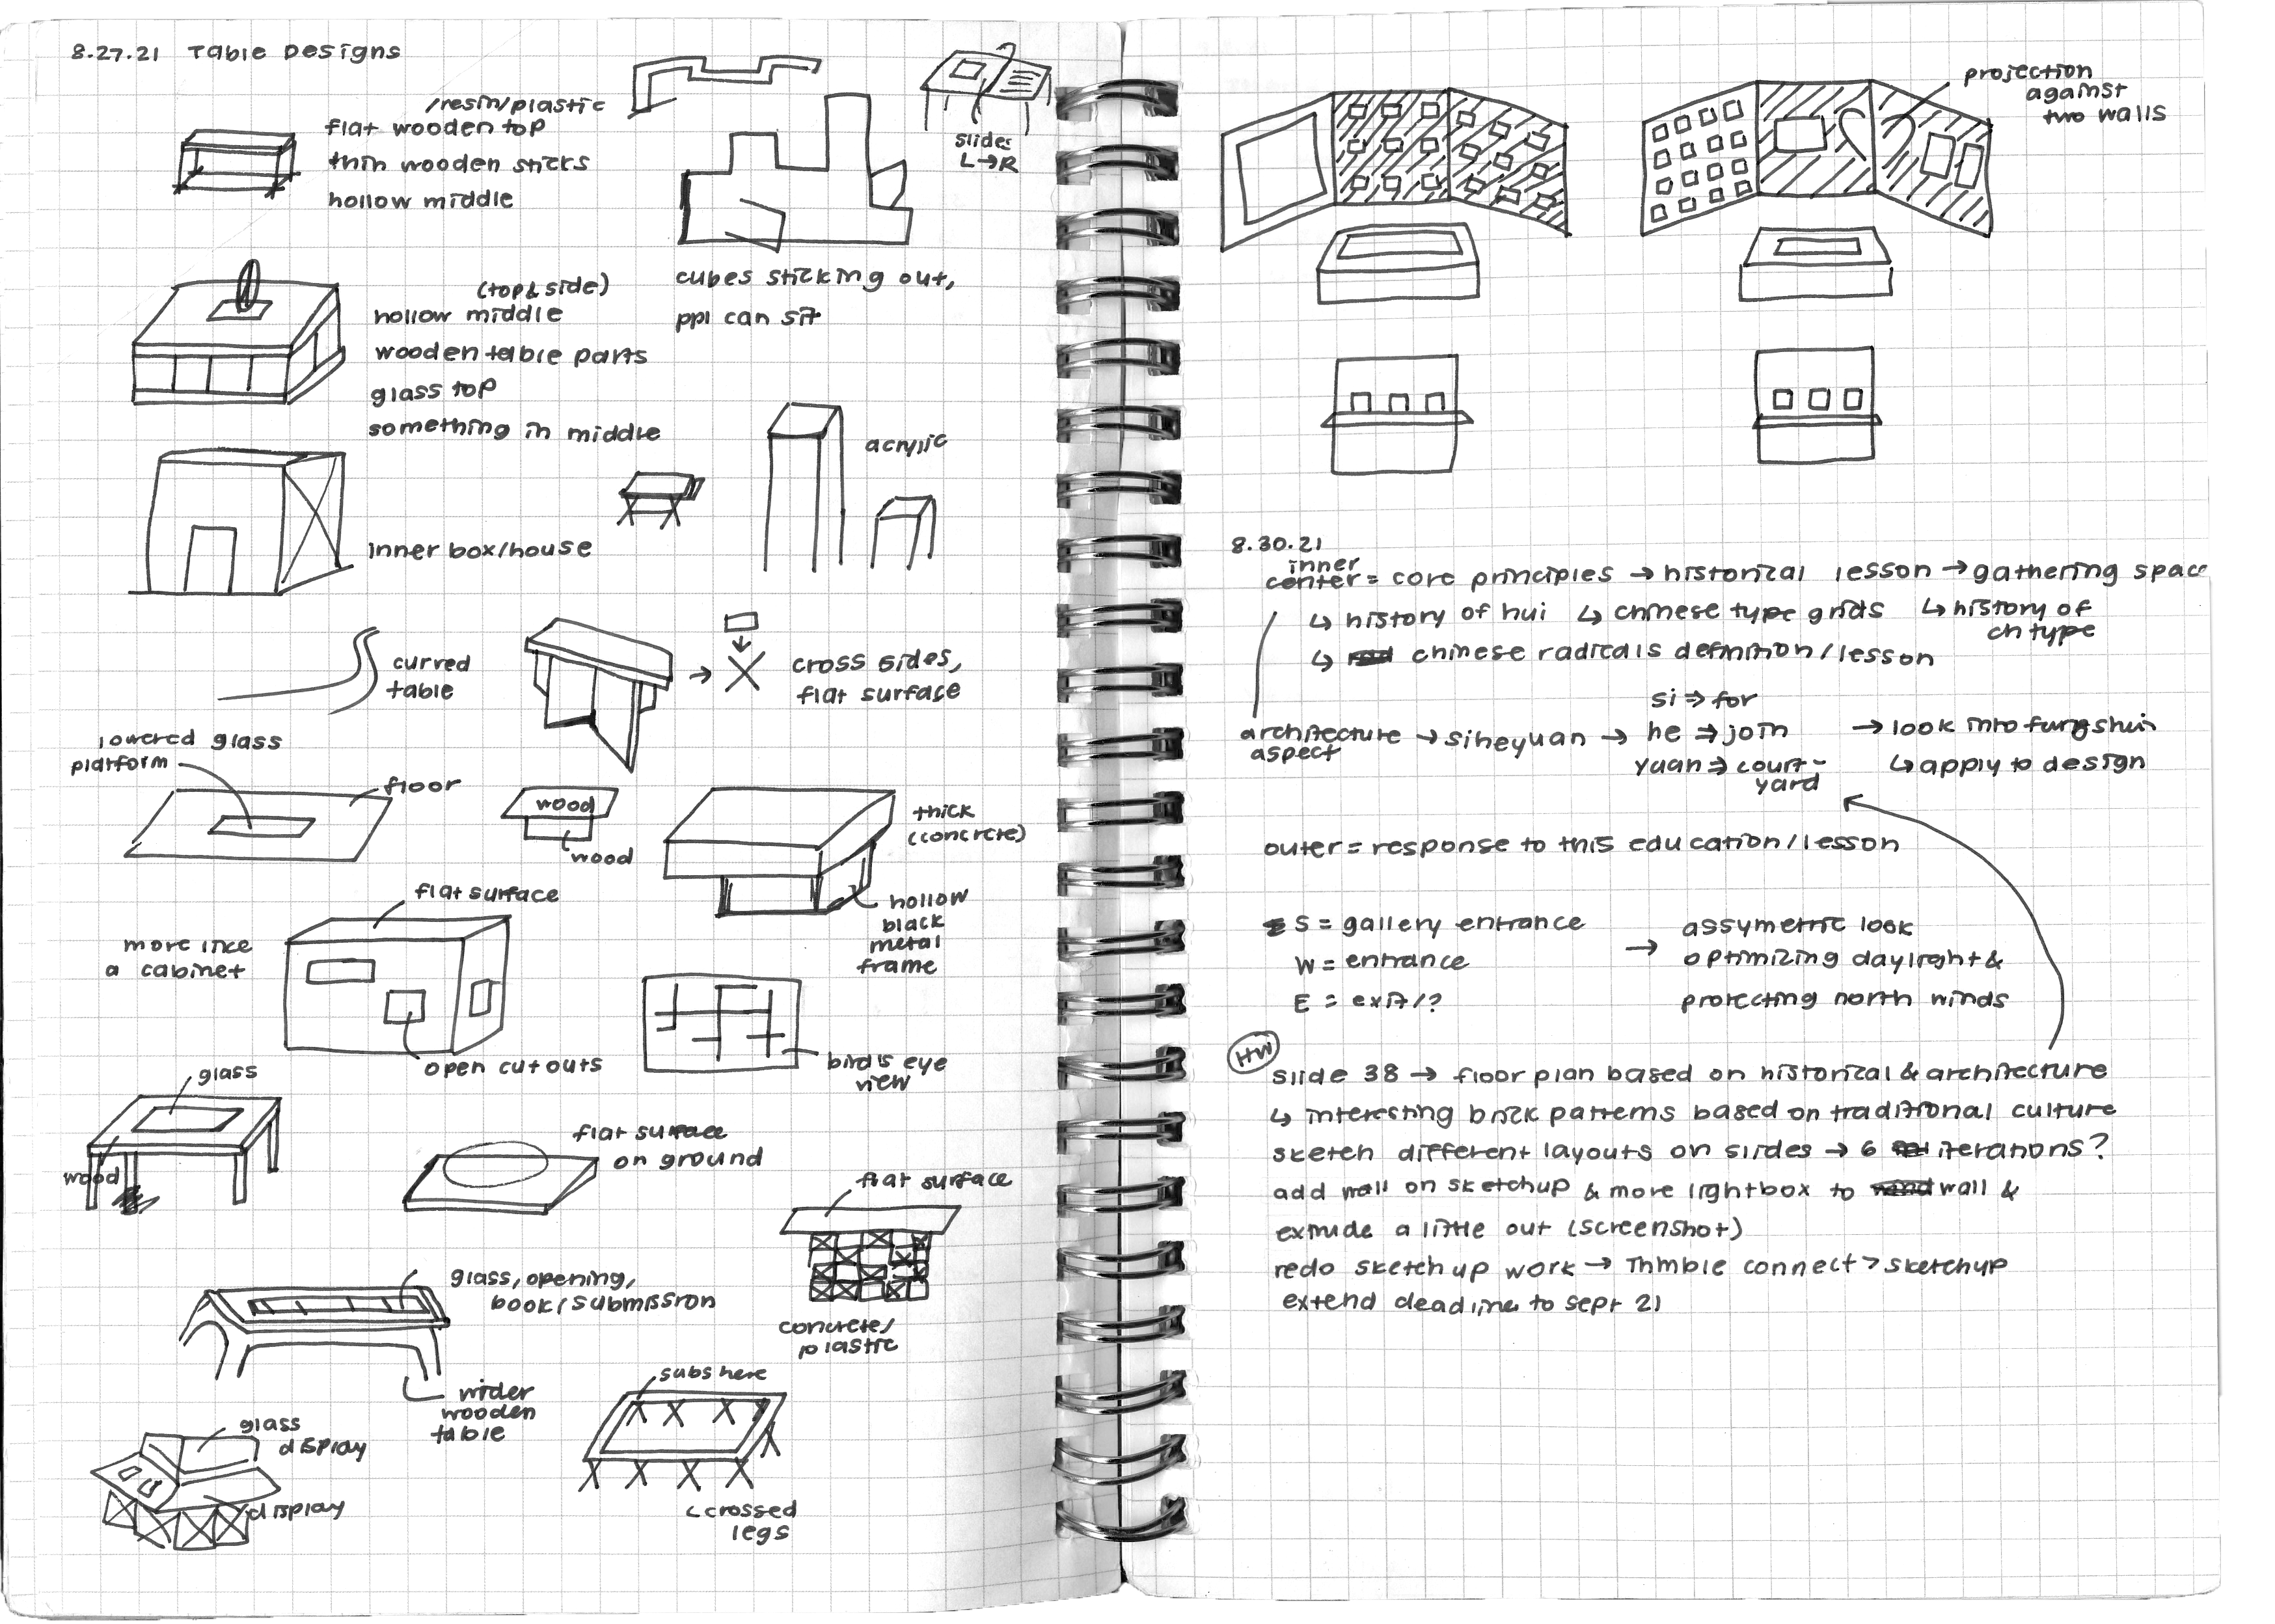 8.27.21 Table Designs
/resin/plastic
flat wooden top
thin wooden sticks
hollow middle
slides
L→R
cubes sticking out,
ppl can sit
(top & side)
hollow middle
wooden table parts
glass top
something in middle
acrylic
inner box/house
curved
table
→
cross sides,
flat surface
lowered glass
platform
floor
wood
wood
thick
(concrete)
hollow
black
metal
frame
flat surface
more like
a cabinet
open cutouts
bird's eye
view
glass
wood
flat surface
on ground
flat surface
concrete/
plastic
glass, opening,
book/submission
wider
wooden
table
subs here
crossed
legs
glass
display
display
projection
against
two walls
8.30.21
inner
center = core principles → historical lesson → gathering space
↳ history of hui ↳ chinese type grids ↳ history of
ch type
↳ chinese radicals definition/lesson
si ⇒ for
architecture → siheyuan → he ⇒ join → look into fungshui
aspect
yuan ⇒ court-
yard
↳ apply to design
outer = response to this education/lesson
S = gallery entrance
W = entrance
E = exit/?
→ assymetric look
optimizing daylight &
protecting north winds
HW
slide 38 → floor plan based on historical & architecture
↳ interesting brick patterns based on traditional culture
sketch different layouts on slides → 6 iterations?
add wall on sketchup & more lightbox to wall &
extrude a little out (screenshot)
redo sketchup work → Trimble connect > sketchup
extend deadline to sept 21